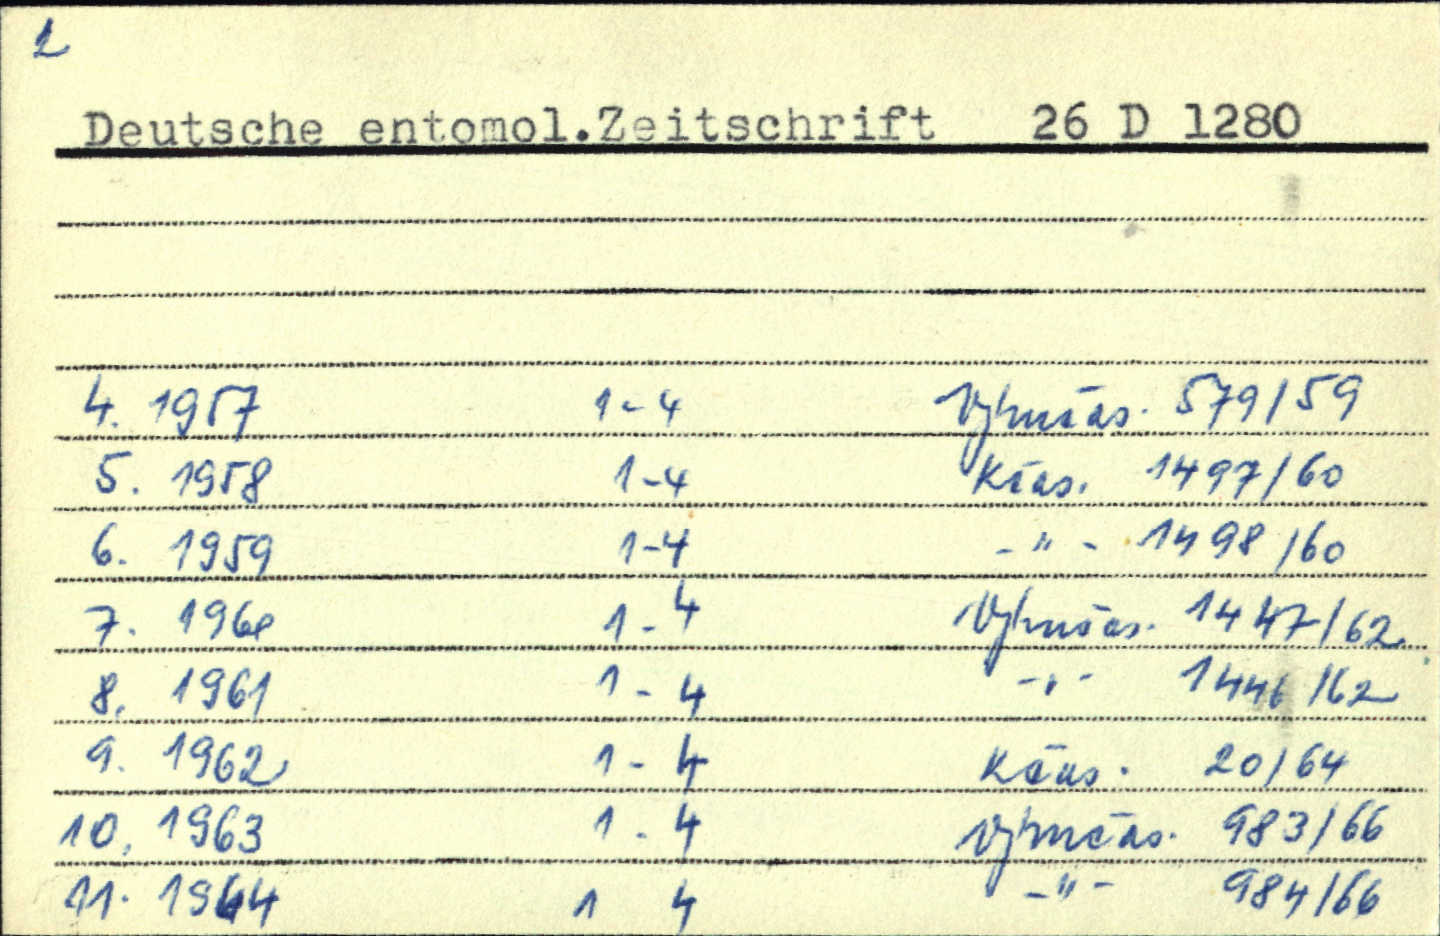 2
Deutsche entomol.Zeitschrift 26 D 1280
4. 1957 1-4 Výmčas. 579/59
5. 1958 1-4 Kčas. 1497/60
6. 1959 1-4 -"- 1498/60
7. 1960 1-4 Výmčas. 1447/62
8. 1961 1-4 -"- 1446/62
9. 1962 1-4 Kčas. 20/64
10. 1963 1-4 Výmčas. 983/66
11. 1964 1 4 -"- 984/66